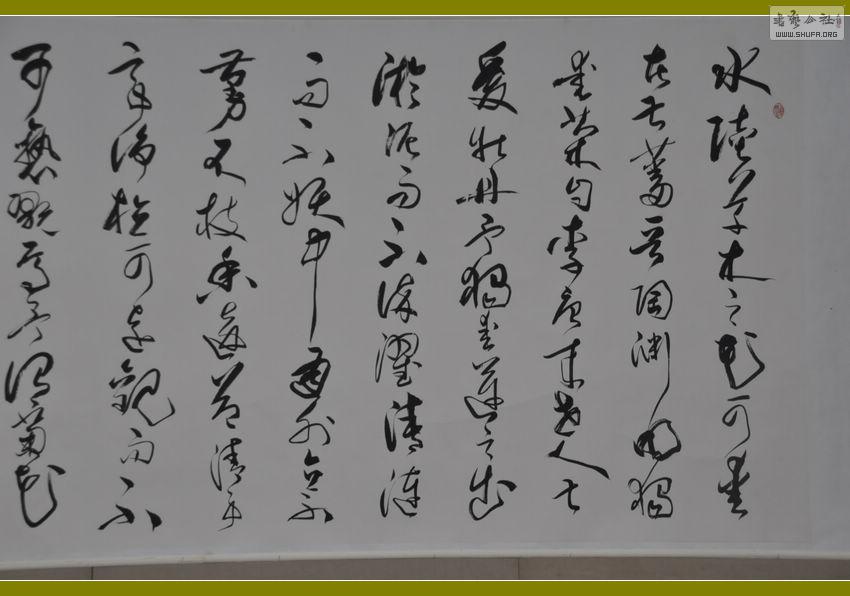 水陸草木之花可愛
者甚蕃晉陶淵明獨
愛菊自李唐來世人甚
愛牡丹予獨愛蓮之出
淤泥而不染濯清漣
而不妖中通外直不
蔓不枝香遠益清亭
亭淨植可遠觀而不
可褻玩焉予謂菊花
WWW.SHUFA.ORG